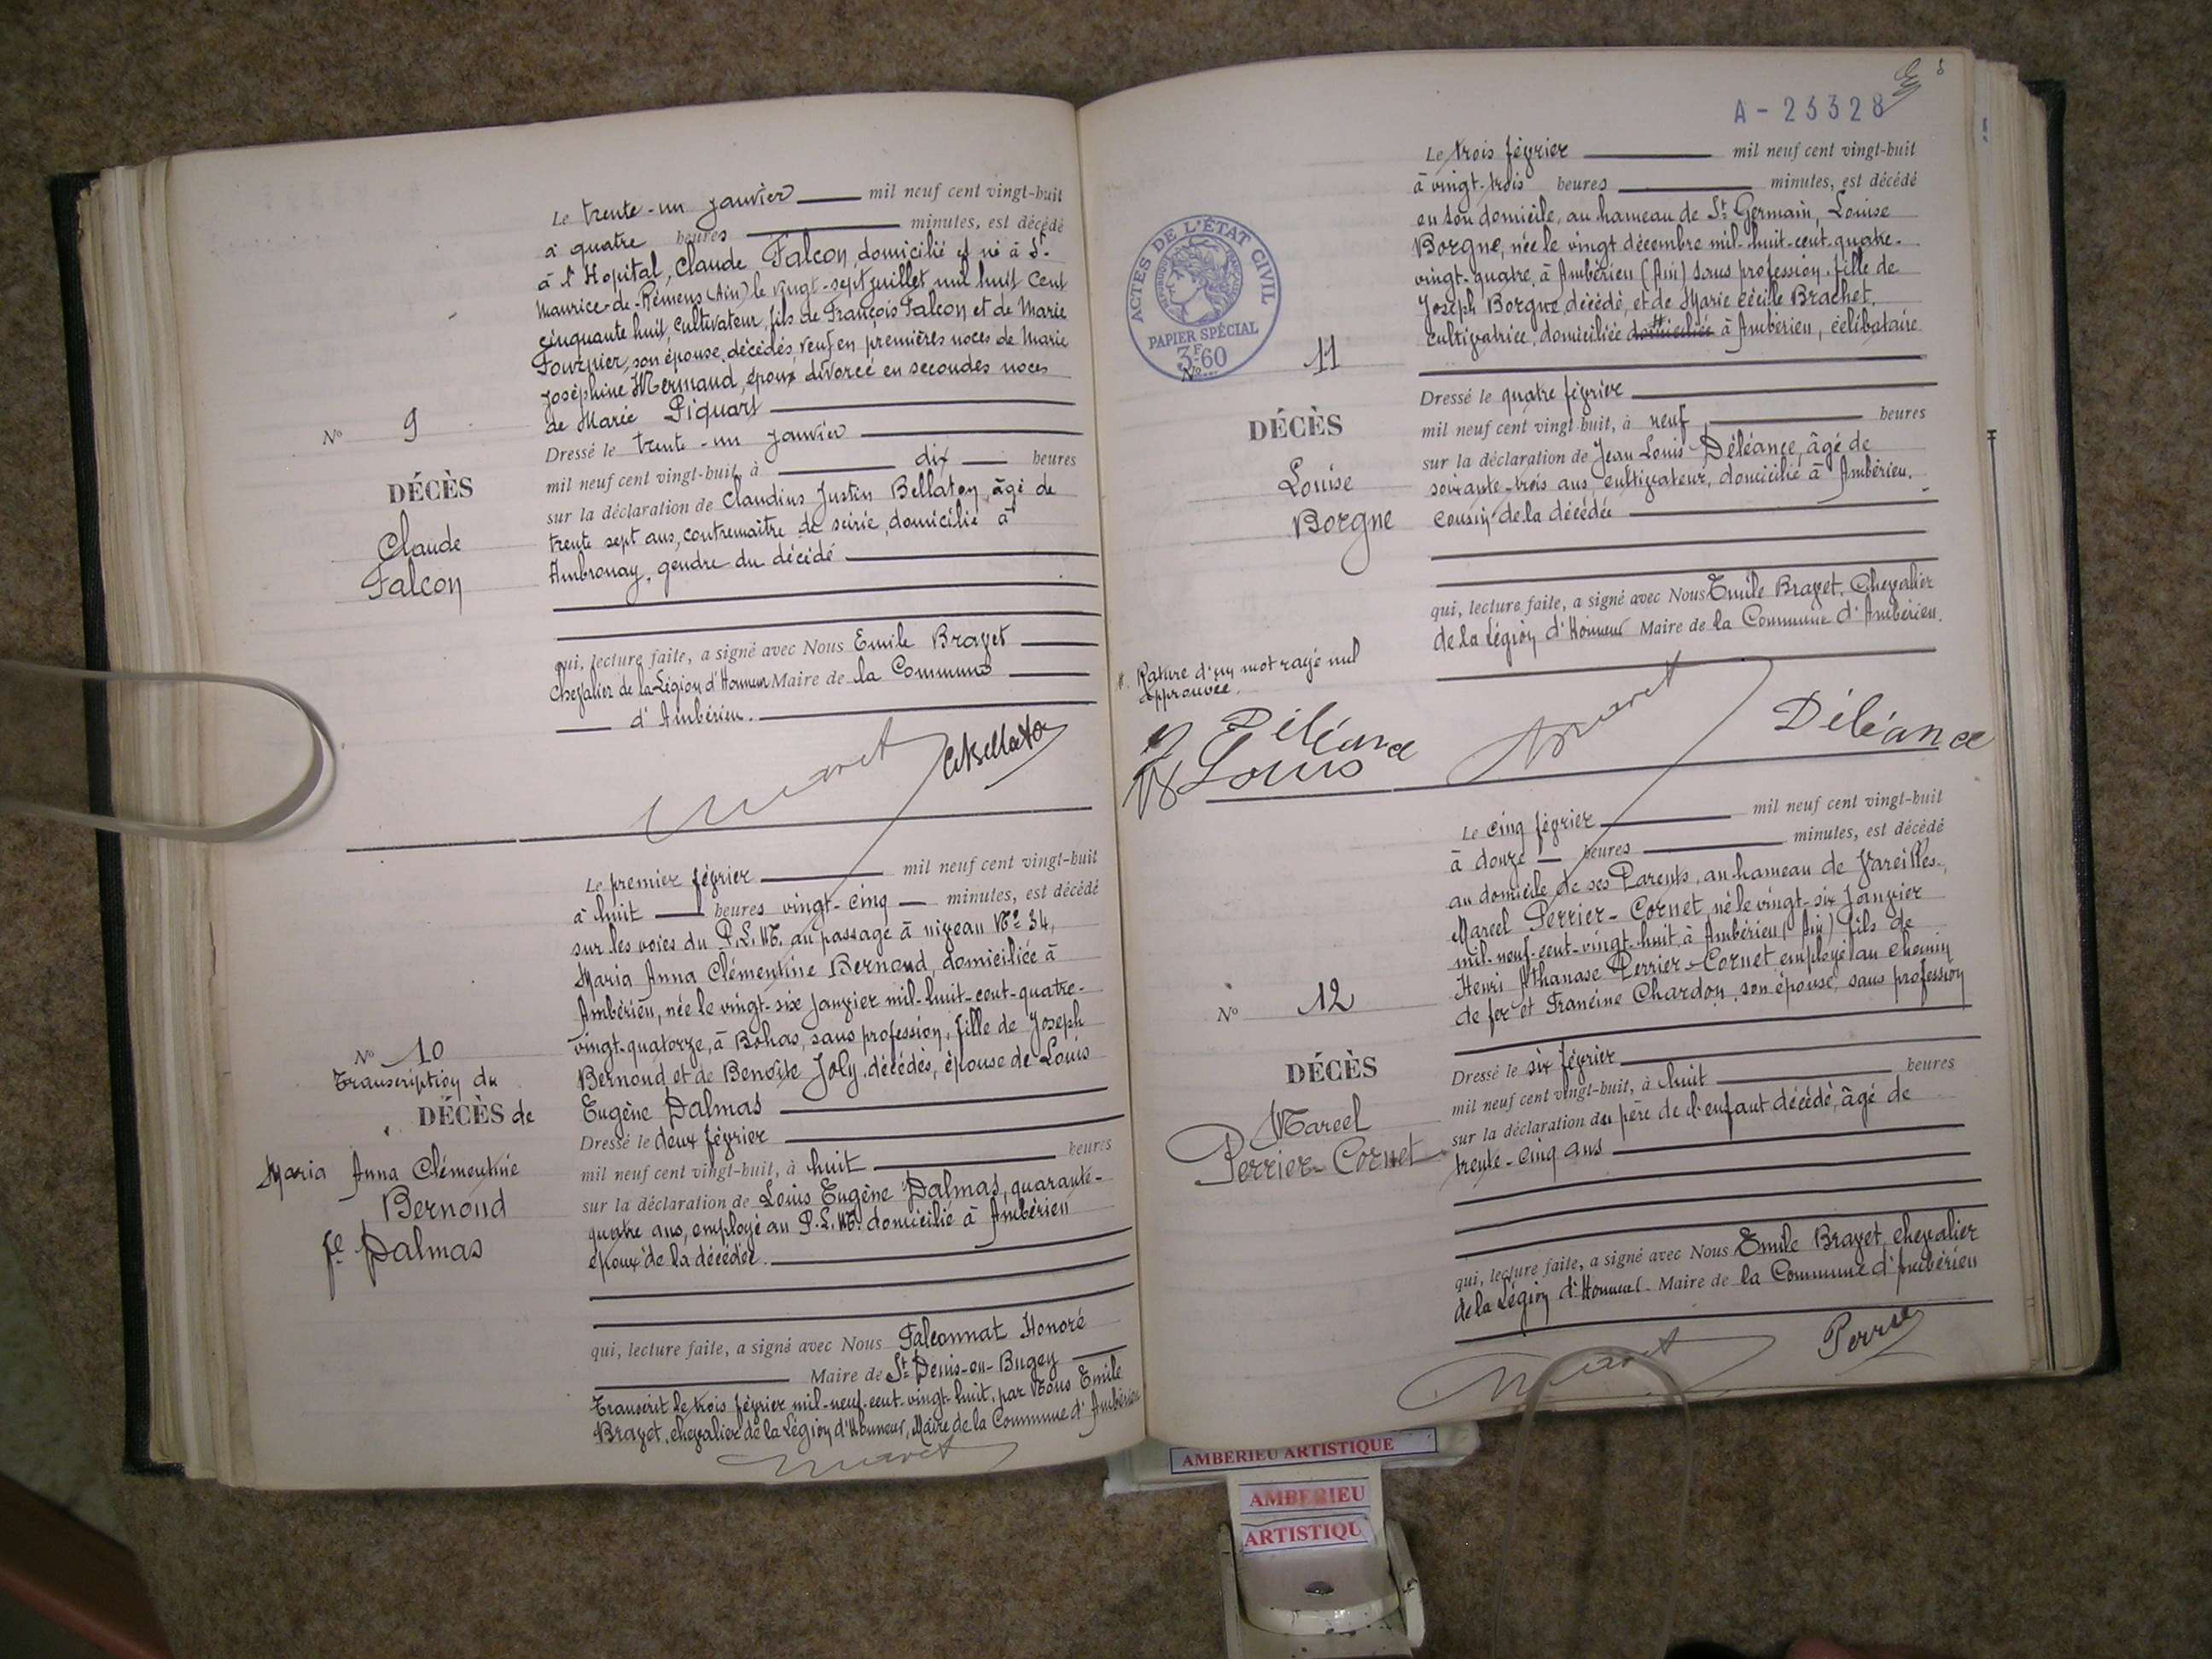 Le trente-un janvier mil neuf cent vingt-huit
à quatre heures minutes, est décédé
à l'Hopital, Claude Falcon, domicilié et né à St-
Maurice-de-Rémens (Ain) le vingt-sept juillet mil huit cent
cinquante huit, cultivateur, fils de François Falcon et de Marie
Fournier, son épouse, décédés, veuf en premières noces de Marie
Joséphine Mermand, époux divorcé en secondes noces
de Marie Piquart
No 9
DÉCÈS
Claude
Falcon
Dressé le trente-un janvier
mil neuf cent vingt-huit, à dix heures
sur la déclaration de Claudius Justin Bellaton, âgé de
trente sept ans, contremaître de scirie, domicilié à
Ambronay, gendre du décédé
qui, lecture faite, a signé avec Nous Emile Bravet
Chevalier de la Légion d'Honneur Maire de la Commune
d'Ambérieu.
Le premier février mil neuf cent vingt-huit
à huit heures vingt-cinq minutes, est décédé
sur les voies du P.L.M. au passage à niveau No 34,
Maria Anna Clémentine Bernoud, domiciliée à
Ambérieu, née le vingt-six janvier mil-huit-cent-quatre-
vingt-quatorze, à Bohas, sans profession, fille de Joseph
Bernoud et de Benoîte Joly, décédés, épouse de Louis
Eugène Dalmas
No 10
Transcription du
DÉCÈS de
Maria Anna Clémentine
Bernoud
fe Dalmas
Dressé le deux février
mil neuf cent vingt-huit, à huit heures
sur la déclaration de Louis Eugène Dalmas, quarante-
quatre ans, employé au P.L.M. domicilié à Ambérieu
époux de la décédée.
qui, lecture faite, a signé avec Nous Falconnat Honoré
Maire de St Denis-en-Bugey
Transcrit le trois février mil-neuf-cent-vingt-huit, par Nous Emile
Bravet, chevalier de la Légion d'Honneur, Maire de la Commune d'Ambérieu
A - 23328
Le trois février mil neuf cent vingt-huit
à vingt-trois heures minutes, est décédé
en son domicile, au hameau de St Germain, Louise
Borgne, née le vingt décembre mil-huit-cent-quatre-
vingt-quatre, à Ambérieu (Ain) sans profession, fille de
Joseph Borgne, décédé, et de Marie Cécile Brachet,
cultivatrice, domiciliée domiciliée à Ambérieu, célibataire
ACTES DE L'ÉTAT CIVIL
RÉPUBLIQUE FRANÇAISE
PAPIER SPÉCIAL
3F60
No 11
DÉCÈS
Louise
Borgne
Dressé le quatre février
mil neuf cent vingt-huit, à neuf heures
sur la déclaration de Jean Louis Déléance, âgé de
soixante-trois ans, cultivateur, domicilié à Ambérieu,
cousin de la décédée
qui, lecture faite, a signé avec Nous Emile Bravet, Chevalier
de la Légion d'Honneur Maire de la Commune d'Ambérieu.
Rature d'un mot rayé nul
approuvée.
Déléance
Louis
Bravet
Déléance
Le cinq février mil neuf cent vingt-huit
à douze heures minutes, est décédé
au domicile de ses Parents, au hameau de Vareilles,
Marcel Perrier-Cornet, né le vingt-six Janvier
mil-neuf-cent-vingt-huit, à Ambérieu (Ain) fils de
Henri Athanase Perrier-Cornet employé au chemin
de fer et Francine Chardon, son épouse, sans profession
No 12
DÉCÈS
Marcel
Perrier-Cornet
Dressé le six février
mil neuf cent vingt-huit, à huit heures
sur la déclaration du père de l'enfant décédé, âgé de
trente-cinq ans
qui, lecture faite, a signé avec Nous Emile Bravet, chevalier
de la Légion d'Honneur Maire de la Commune d'Ambérieu
AMBERIEU ARTISTIQUE
AMBERIEU
ARTISTIQU